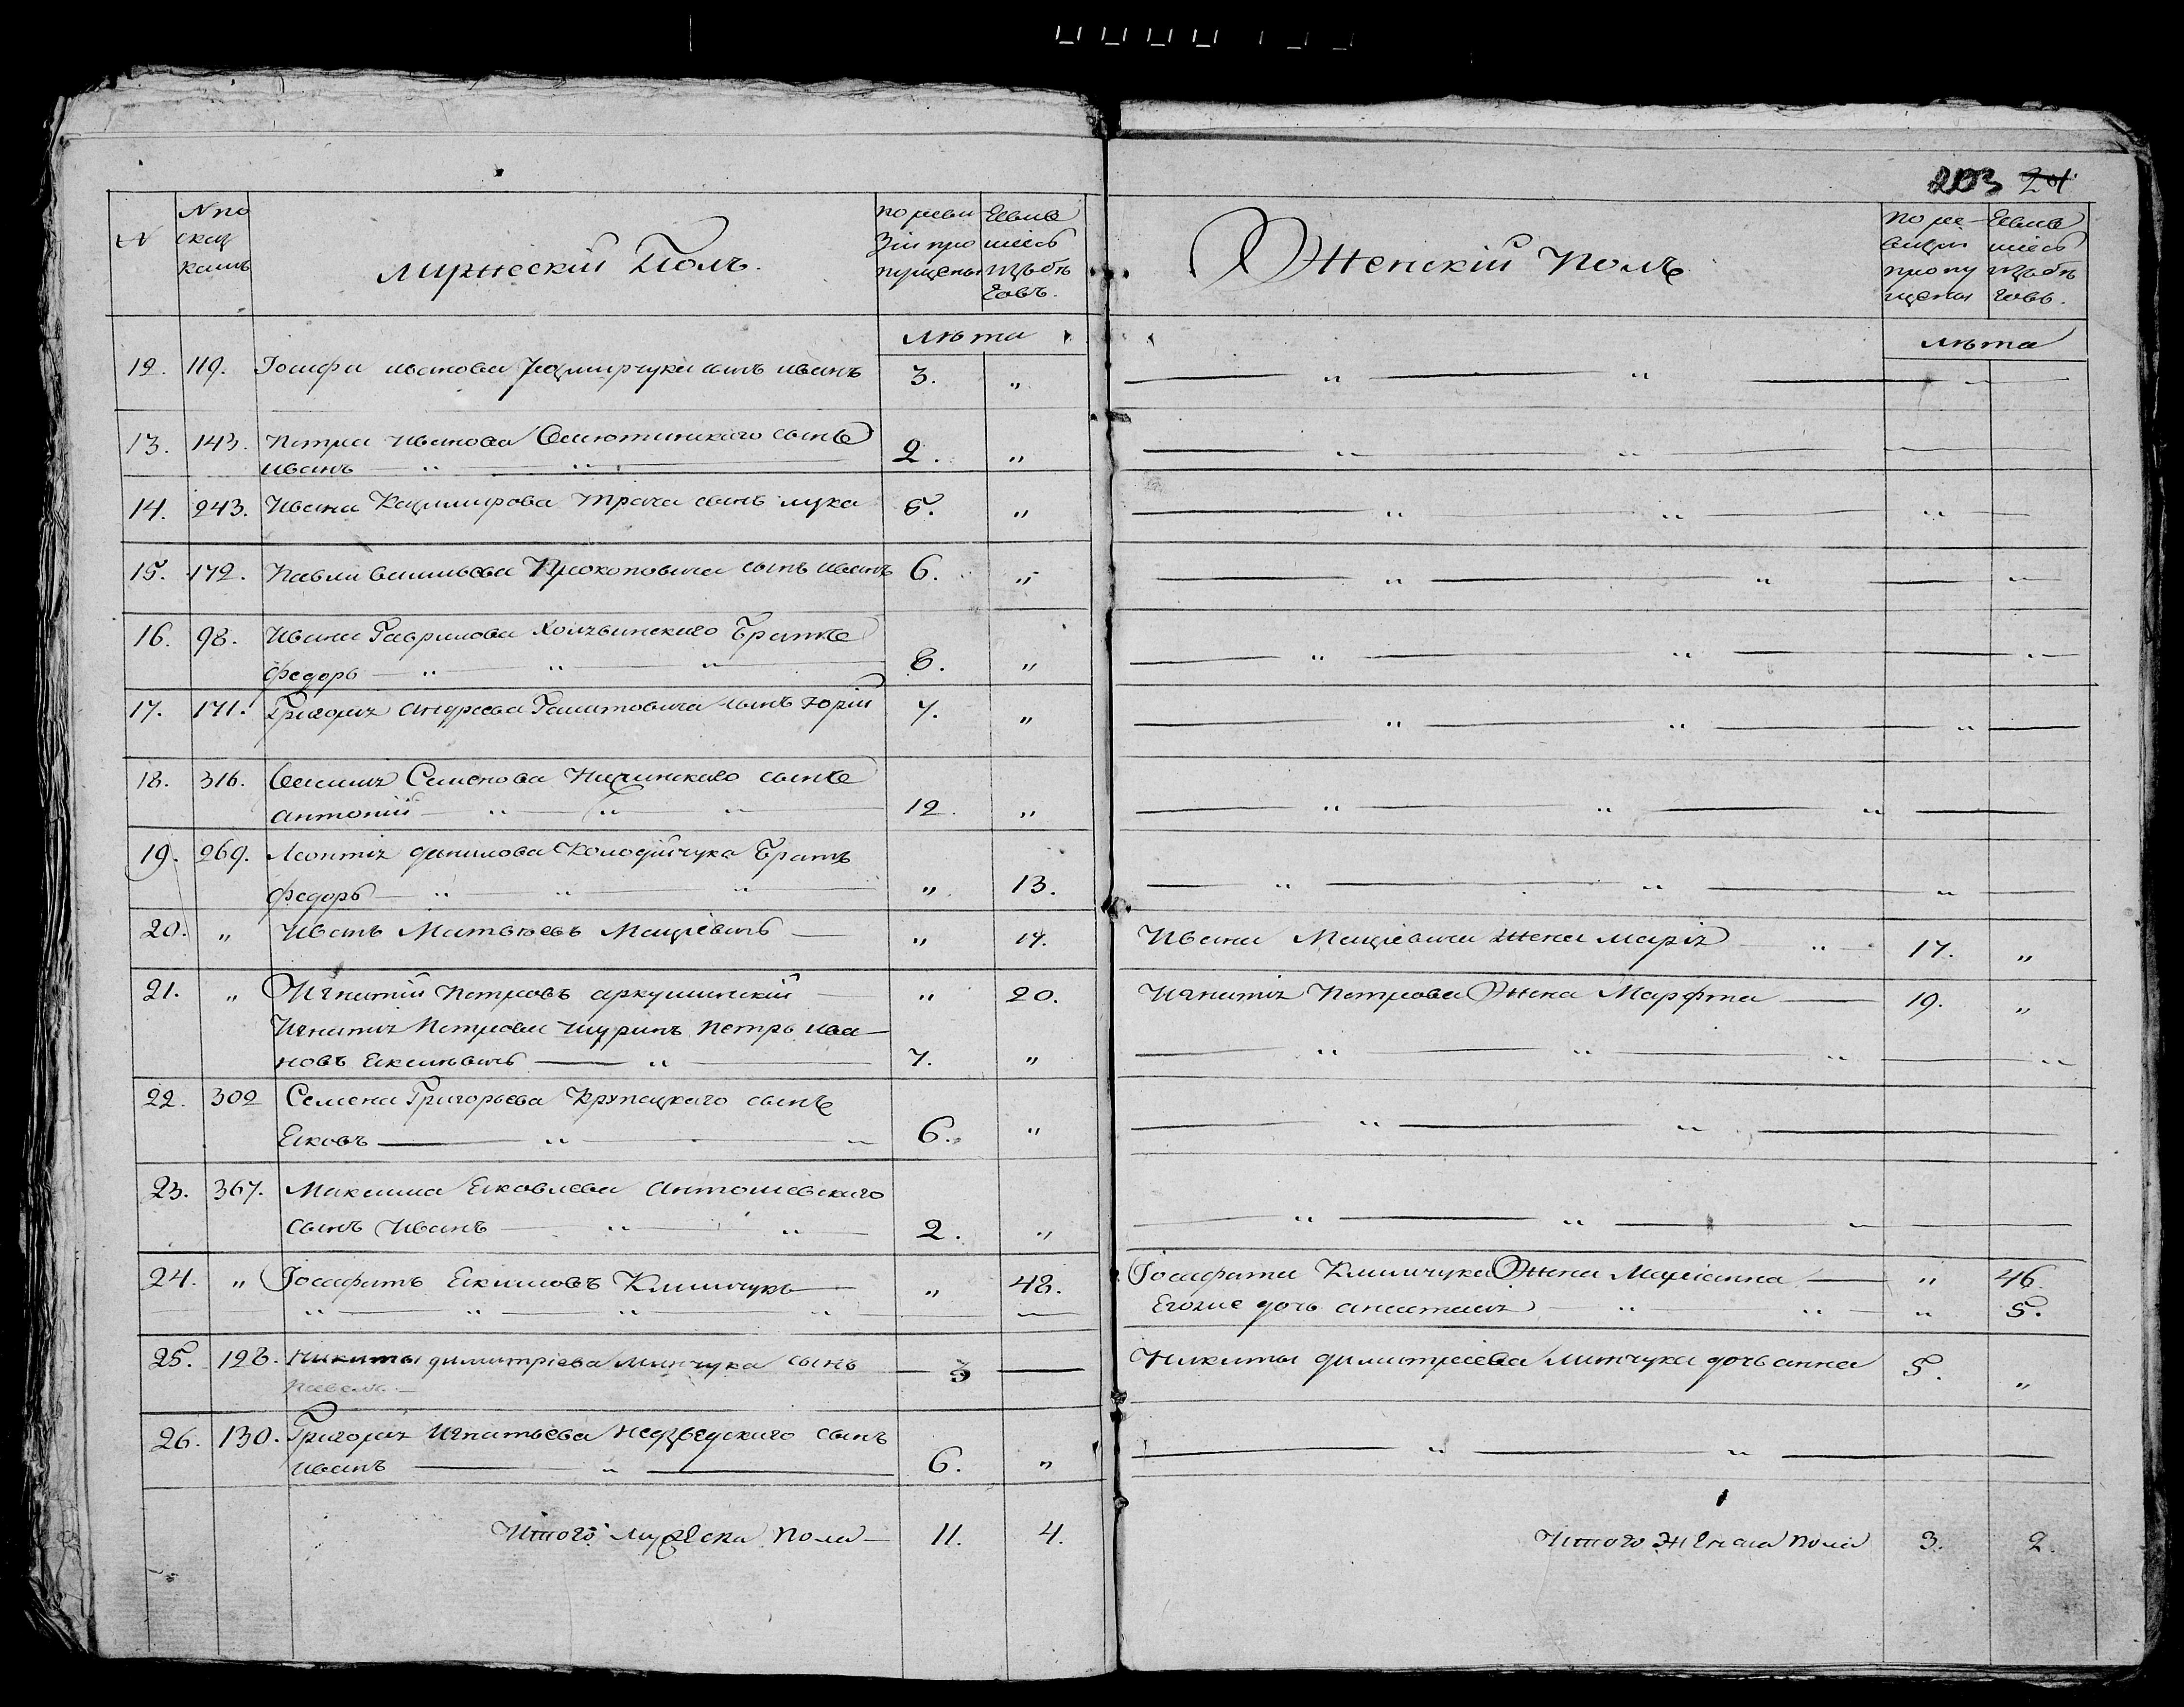 203 201
N
N по
сказ
камъ
Мужескій Полъ.
по реви
зіи про
пущены
Евив
шіесь
изъбѣ
говъ.
Женскій полъ
по ре
визіи
пропу
щены
Евив
шіесь
изъбѣ
говъ.
лѣта
лѣта
12. 119. Іосифа иванова сынъ иванъ 3. „
13. 143. Петра Иванова сынъ
иванъ 2. „
14. 243. Ивана Казимирова Трача сынъ лука 5. „
15. 172. Павла васильева Прокоповича сынъ иванъ 6. „
16. 98. Ивана Гаврилова Братъ
федоръ 8. „
17. 171. Григорія андреева сынъ юрій 7. „
18. 316. Семенова сынъ
антоній 12. „
19. 269. Леонтія данилова Колодійчука Братъ
федоръ „ 13.
20. „ Иванъ Матвѣевъ Мацѣевичъ „ 17. Ивана Мацѣевича жена марія 17. „
21. „ Игнатій Петровъ аркушинскій „ 20. Игнатія Петрова Жена Марфта 19. „
Игнатія Петрова шуринъ петръ ива-
новъ 7. „
22. 302 Семена Григорьева Крупецкаго сынъ
Ековъ 6. „
23. 367. Максима Ековлева антошевскаго
сынъ Иванъ 2. „
24. „ Іосафатъ Екимовъ Климчукъ „ 48. Іосафата Климчука Жена Маріанна „ 46.
Егоже дочь анастасія „ 5.
25. 128. Никиты димитріева Минчука сынъ 3 Никиты димитріева Минчука дочь анна 5. „
павелъ
26. 130. Григорія Игнатьева недзведскаго сынъ
иванъ 6. „
Итого мужеска пола 11. 4. Итого женска пола 3. 2.